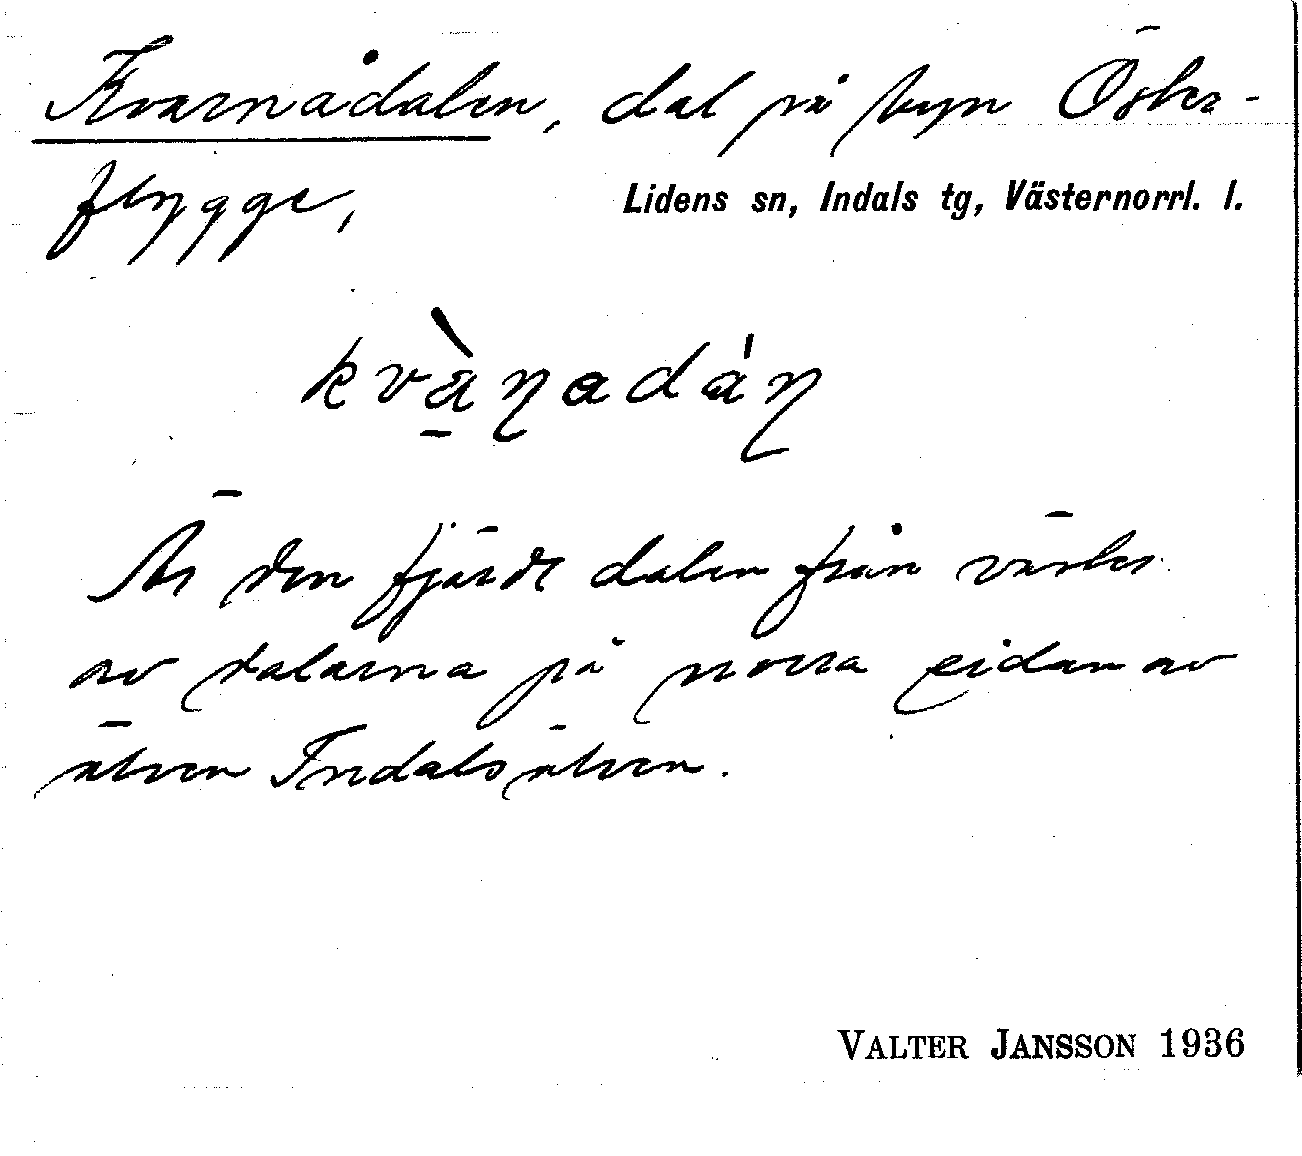 Kvarnådalen, dal på byn Öster-
flygge, Lidens sn, Indals tg, Västernorrl. l.
kvàṉadáṉ
Är den fjärde dalen från väster
av dalarna på norra sidan av
älven Indalsälven.
VALTER JANSSON 1936